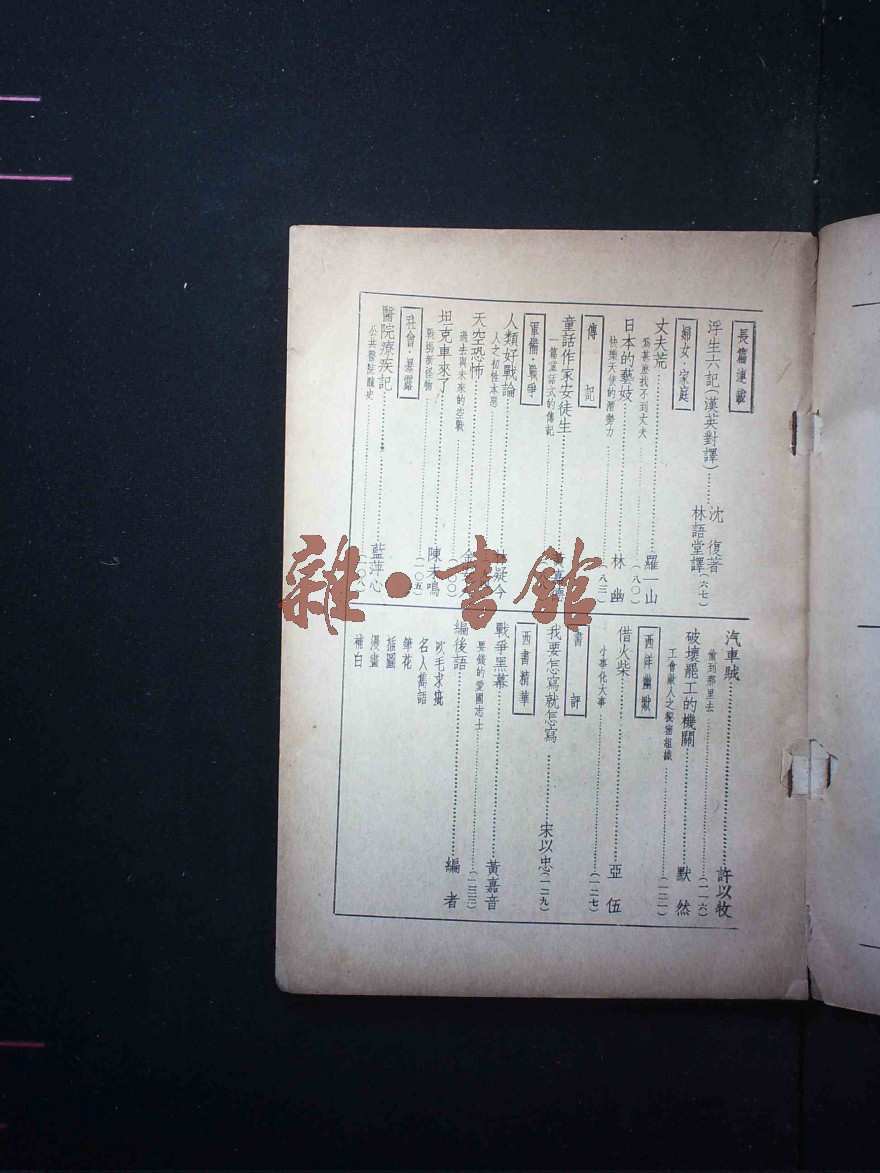 長篇連載
浮生六記(漢英對譯)……沈復著
林語堂譯(六七)
婦女・家庭
丈夫荒……羅一山
為甚麼找不到丈夫……(八〇)
日本的藝妓……林幽
快樂天使的潛勢力……(八三)
傳記
童話作家安徒生……黃嘉德
一篇童話式的傳記……
軍備・戰爭
人類好戰論……林疑今
人之初性本惡……
天空恐怖……
過去與未來的空戰……(一〇〇)
坦克車來了……陳未鳴
戰場新怪物……(一〇五)
社會・暴露
醫院療疾記……藍萍心
公共醫院醜史……(一〇八)
汽車賊……許以牧
偷到那里去……(一一六)
破壞罷工的機關……默然
工會敵人之秘密組織……(一二一)
西洋幽默
借火柴……亞伍
小事化大事……(一二七)
書評
我要怎寫就怎寫……宋以忠(一二九)
西書精華
戰爭黑幕……黃嘉音
要錢的愛國志士……(一三三)
編後語……編者
吹毛求疵
名人雋語
筆花
插圖
漫畫
補白
雜・書館